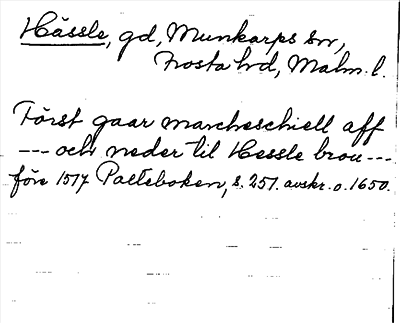 Hässle, gd, Munkarps sn,
Frosta hd, Malm. l.
Först gaar marcheschiell aff
--- och neder til Hessle brou ---
före 1517 Palteboken, s. 257. avskr. o. 1650.